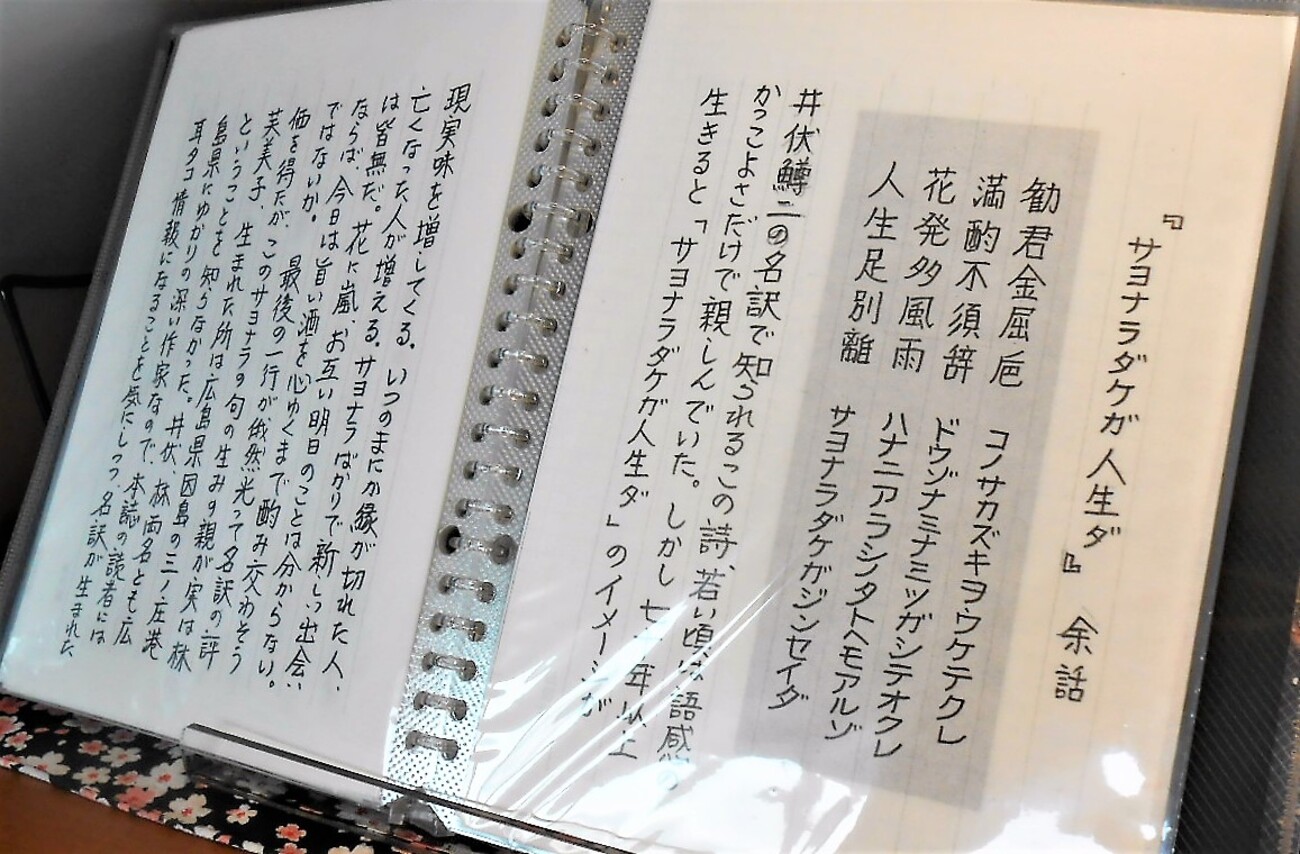 『サヨナラダケガ人生ダ』 余話
勧君金屈卮 コノサカズキヲウケテクレ
満酌不須辞 ドウゾナミナミツガシテオクレ
花発多風雨 ハナニアラシノタトヘモアルゾ
人生足別離 サヨナラダケガジンセイダ
井伏鱒二の名訳で知られるこの詩、若い頃は語感の
かっこよさだけで親しんでいた。しかし七十年以上
生きると「サヨナラダケガ人生ダ」のイメージが
現実味を増してくる。いつのまにか縁が切れた人、
亡くなった人が増える。サヨナラばかりで新しい出会い
は皆無だ。花に嵐、お互い明日のことは分からない。
ならば、今日は旨い酒を心ゆくまで酌み交わそう
ではないか。 最後の一行が俄然光って名訳の評
価を得たが、このサヨナラの句の生みの親が実は林
芙美子、生まれた所は広島県因島の三ノ庄港
ということを知らなかった。井伏、林両名とも広
島県にゆかりの深い作家なので、本誌の読者には
耳タコ情報になることを気にしつつ、名訳が生まれた